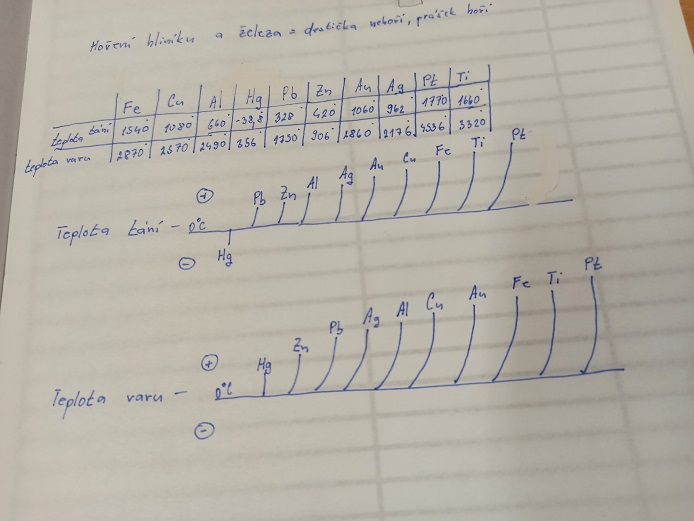 Hoření hliníku a železa = dratička nehoří, prášek hoří
Fe Cu Al Hg Pb Zn Au Ag Pt Ti
teplota tání 1540° 1080° 660° -38,8° 328° 420° 1060° 962° 1770° 1660°
teplota varu 2870° 2570° 2490° 356° 1750° 906° 2860° 2176° 4536° 3320°
+ Pb Zn Al Ag Au Cu Fe Ti Pt
Teplota tání - 0°C
- Hg
+ Hg Zn Pb Ag Al Cu Au Fe Ti Pt
Teplota varu - 0°C
-